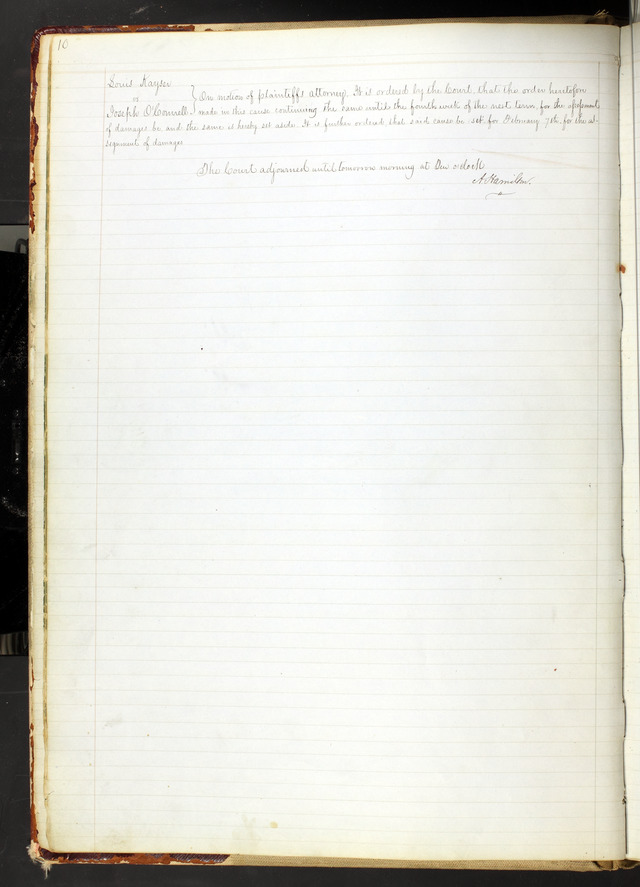 10
Louis Kayser
vs
Joseph O'Connell } On motion of plaintiffs attorney, It is ordered by the Court, that the order heretofore
made in this cause continuing the same until the fourth week of the next term, for the assessment
of damages be and the same is hereby set aside. It is further ordered that said cause be set for February 7th, for the as-
sessment of damages
The Court adjourned until tomorrow morning at Ten o'clock
A. Hamilton.